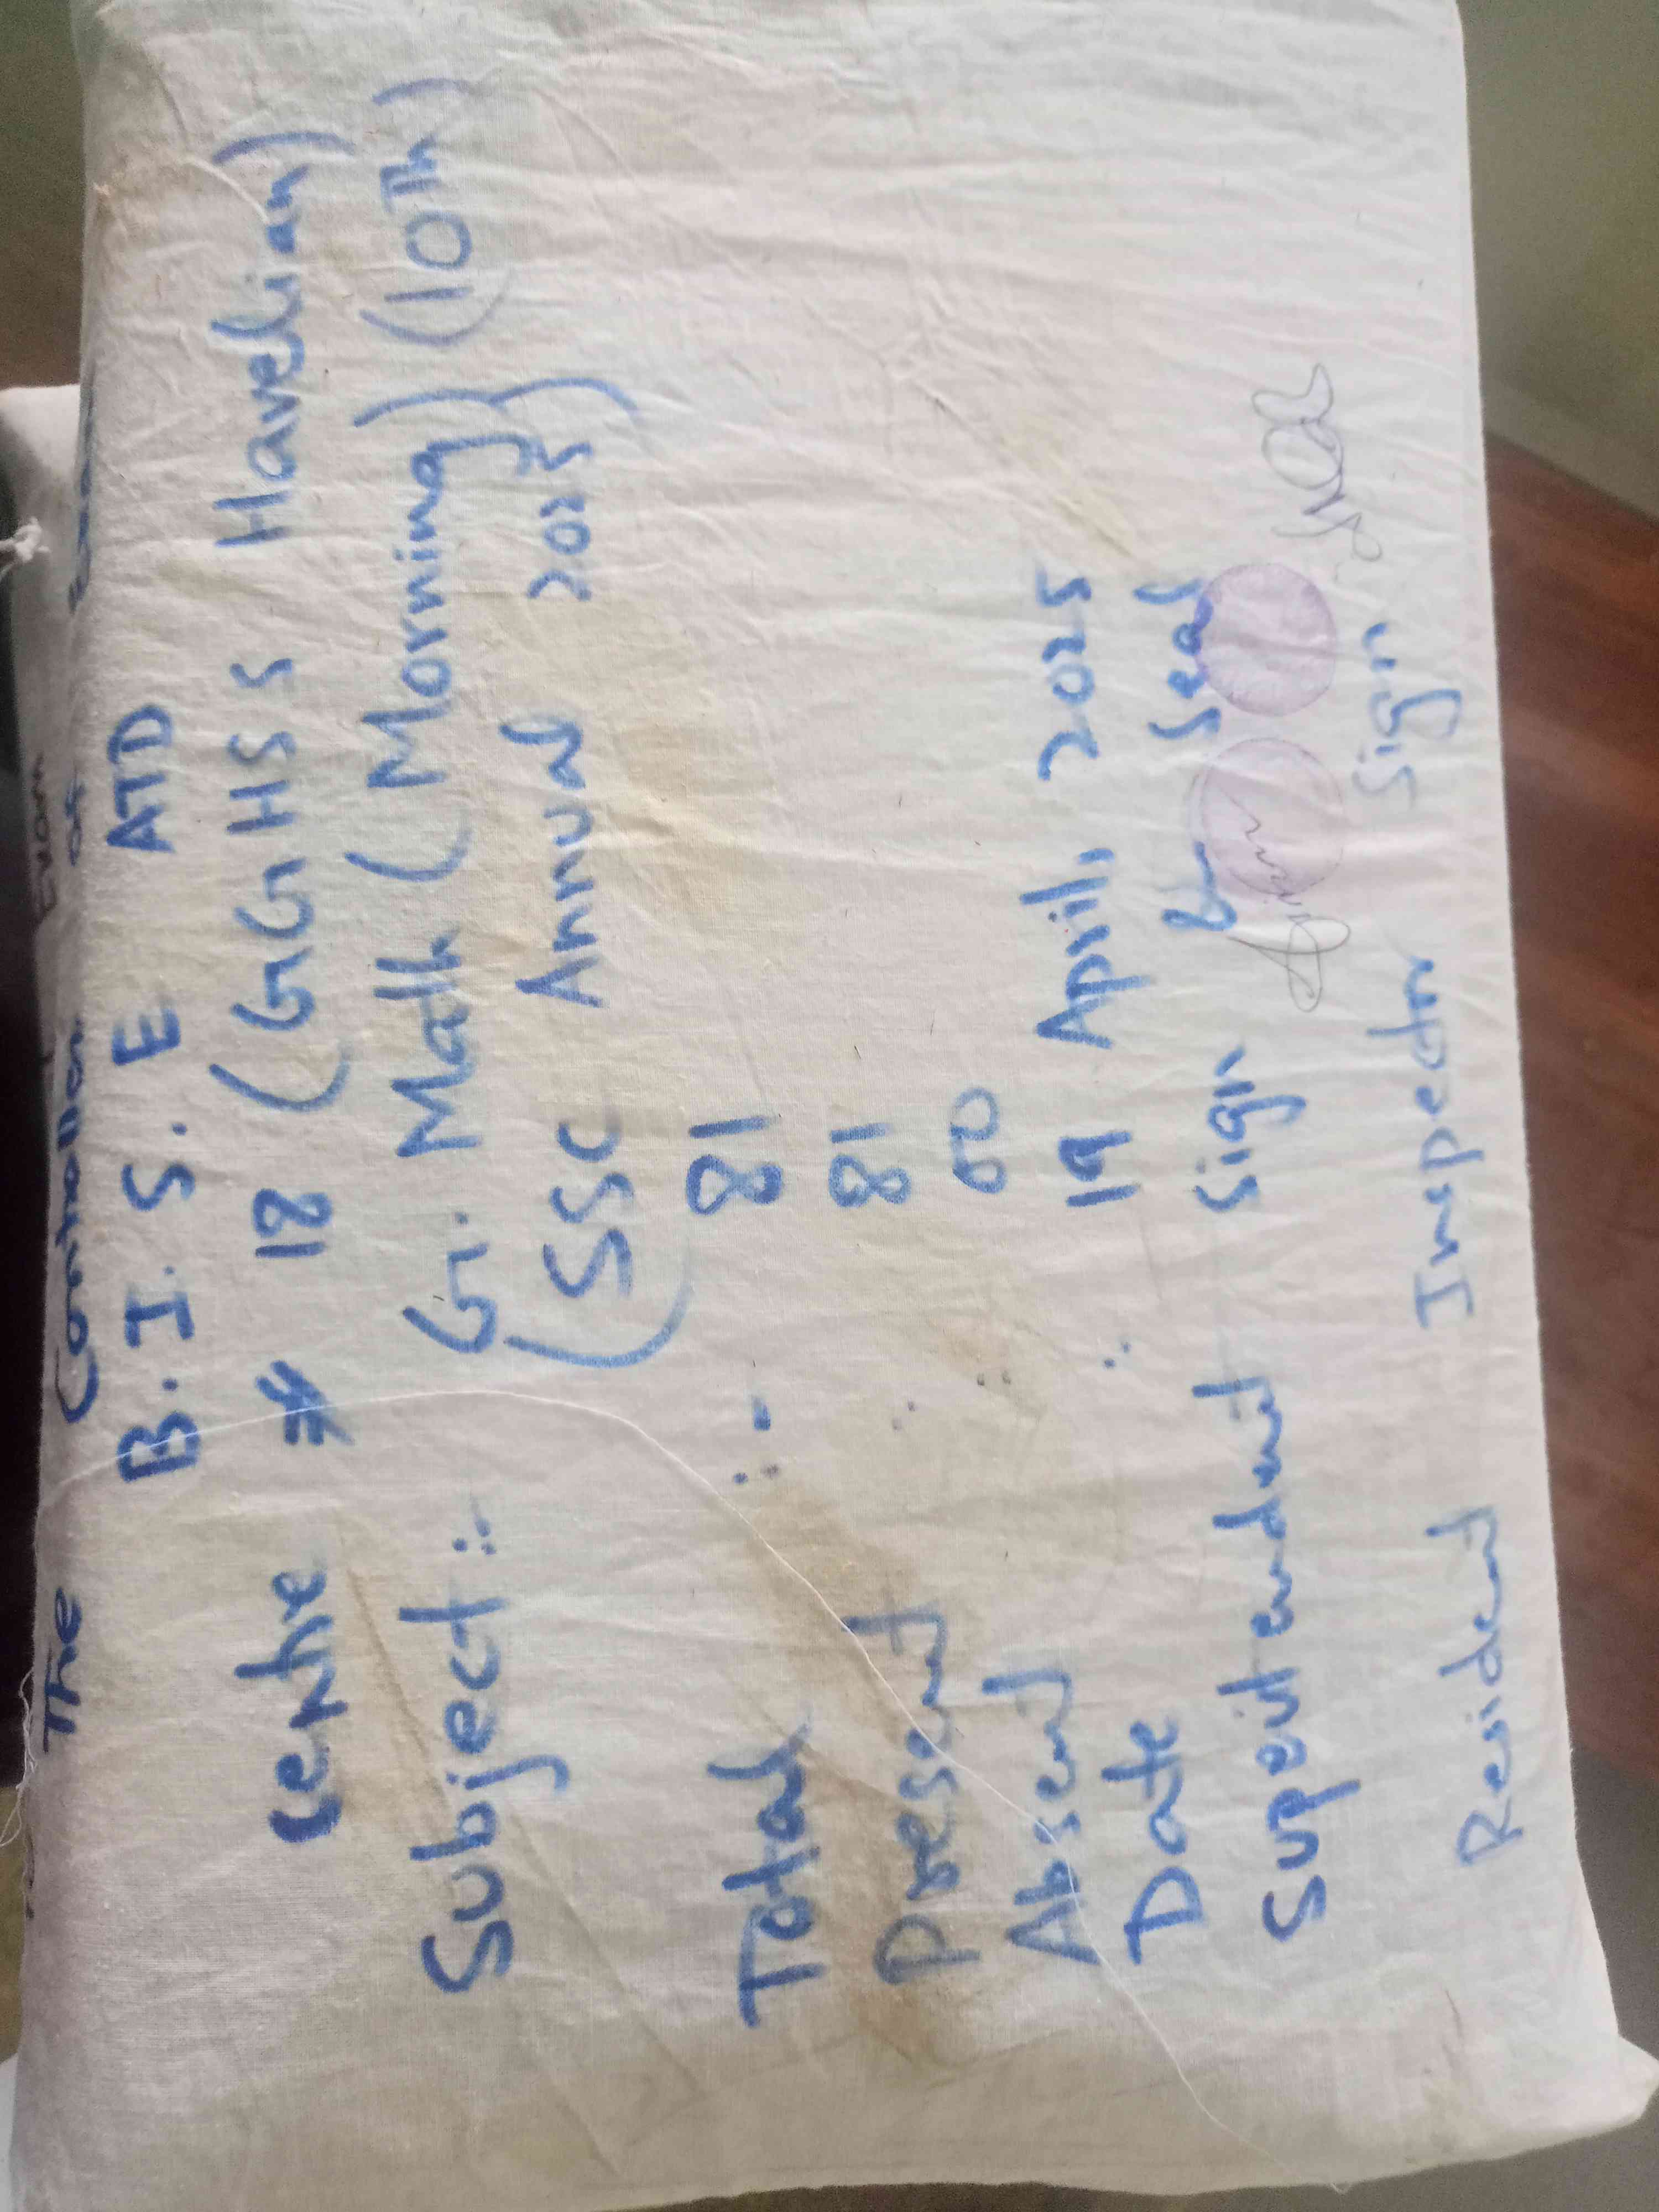 The Controller of Exam
B. I. S. E ATD
Centre # 18 (GGHSS Havelian)
Subject :: G. Math (Morning) (10Th)
(SSC Annual 2025)
Total :- 81
Present : 81
Absent : 00
Date : 19 April, 2025
Superitendent Sign & Seal
Resident Inspector Sign